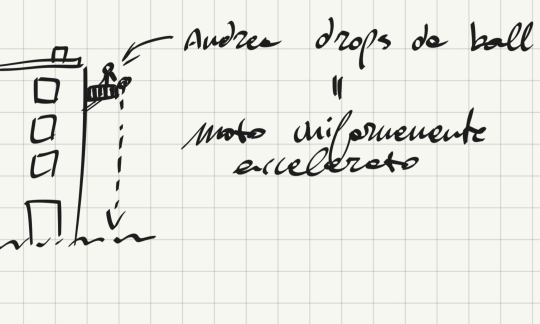 Andrea drops da ball
=
moto uniformemente
accelerato